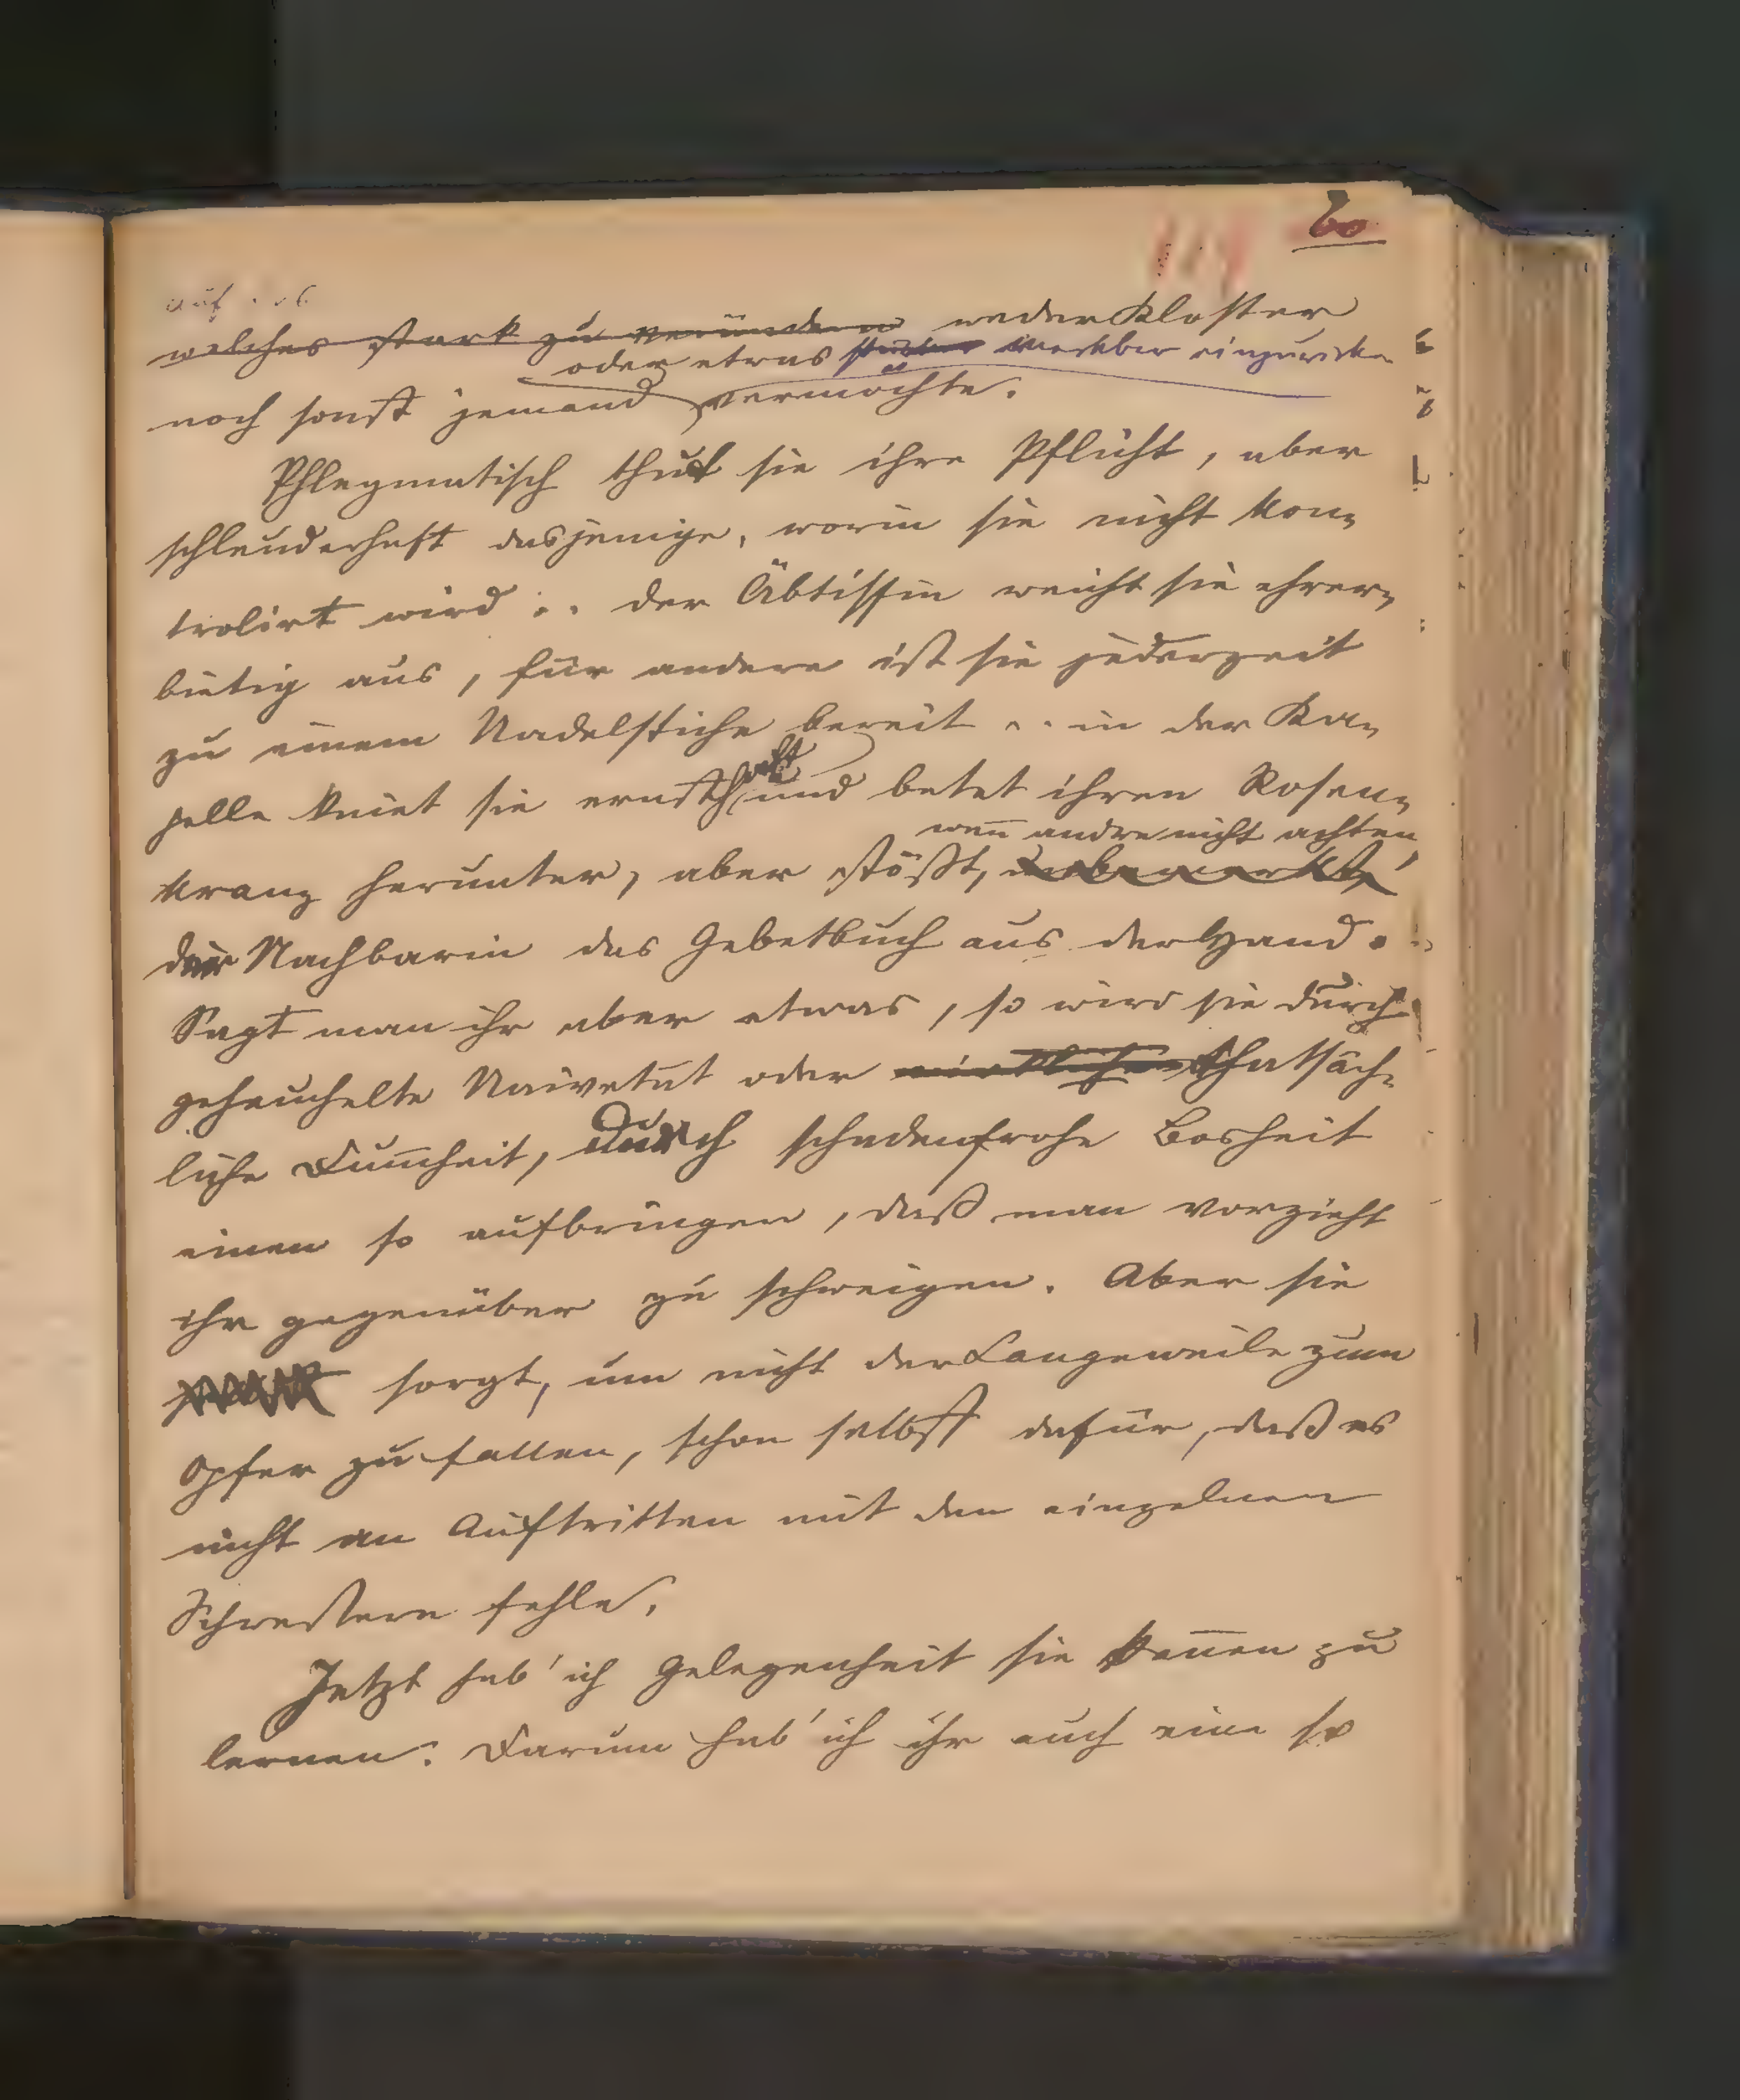 60
119
auf
welches stark zu verändern weder Kloster
oder etwas stärker merkbar einzuwirken
noch sonst jemand vermöchte.
Phlegmatisch thut sie ihre Pflicht, aber
schleuderhaft dasjenige, worin sie nicht kon-
trolirt wird .. der Äbtissin weicht sie ehrer-
bietig aus, für andere ist sie jederzeit
zu einem Nadelstiche bereit .. in der Ka-
pelle kniet sie ernsthaft und betet ihren Rosen-
wen̅ andre nicht achten,
kranz herunter, aber stößt, unbemerkt,
der Nachbarin das Gebetbuch aus der Hand..
Sagt man ihr aber etwas, so wird sie durch
geheuchelte Naivetät oder wirkliche thatsäch-
liche Dum̅heit, durch schadenfrohe Bosheit
einen so aufbringen, daß man vorzieht
ihr gegenüber zu schweigen. Aber sie
sorgt, um nicht der Langeweile zum
Opfer zu fallen, schon selbst dafür, daß es
nicht an Auftritten mit den einzelnen
Schwestern fehle.
Jetzt hab' ich Gelegenheit sie ken̅en zu
lernen. Darum hab' ich ihr auch eine so